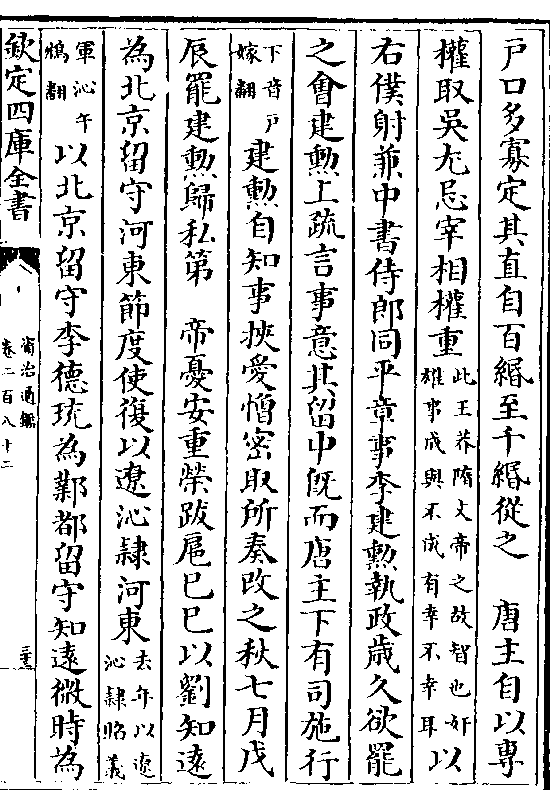 戸口多寡定其直自百緡至千緡從之　唐主自以專
權取吳尤忌宰相權重此王莽隋文帝之故智也奸雄事成與不成有幸不幸耳以
右僕射兼中書侍郎同平章事李建勲執政歲久欲罷
之會建勲上疏言事意其留中既而唐主下有司施行
下音戶嫁翻建勲自知事挾愛憎密取所奏改之秋七月戊
辰罷建勲歸私第　帝憂安重榮跋扈已巳以劉知逺
為北京留守河東節度使復以遼沁隸河東去年以遼沁隸昭義
軍沁午鴆翻以北京留守李德珫為鄴都留守知逺微時為
欽定四庫全書
資治通鑑
卷二百八十二